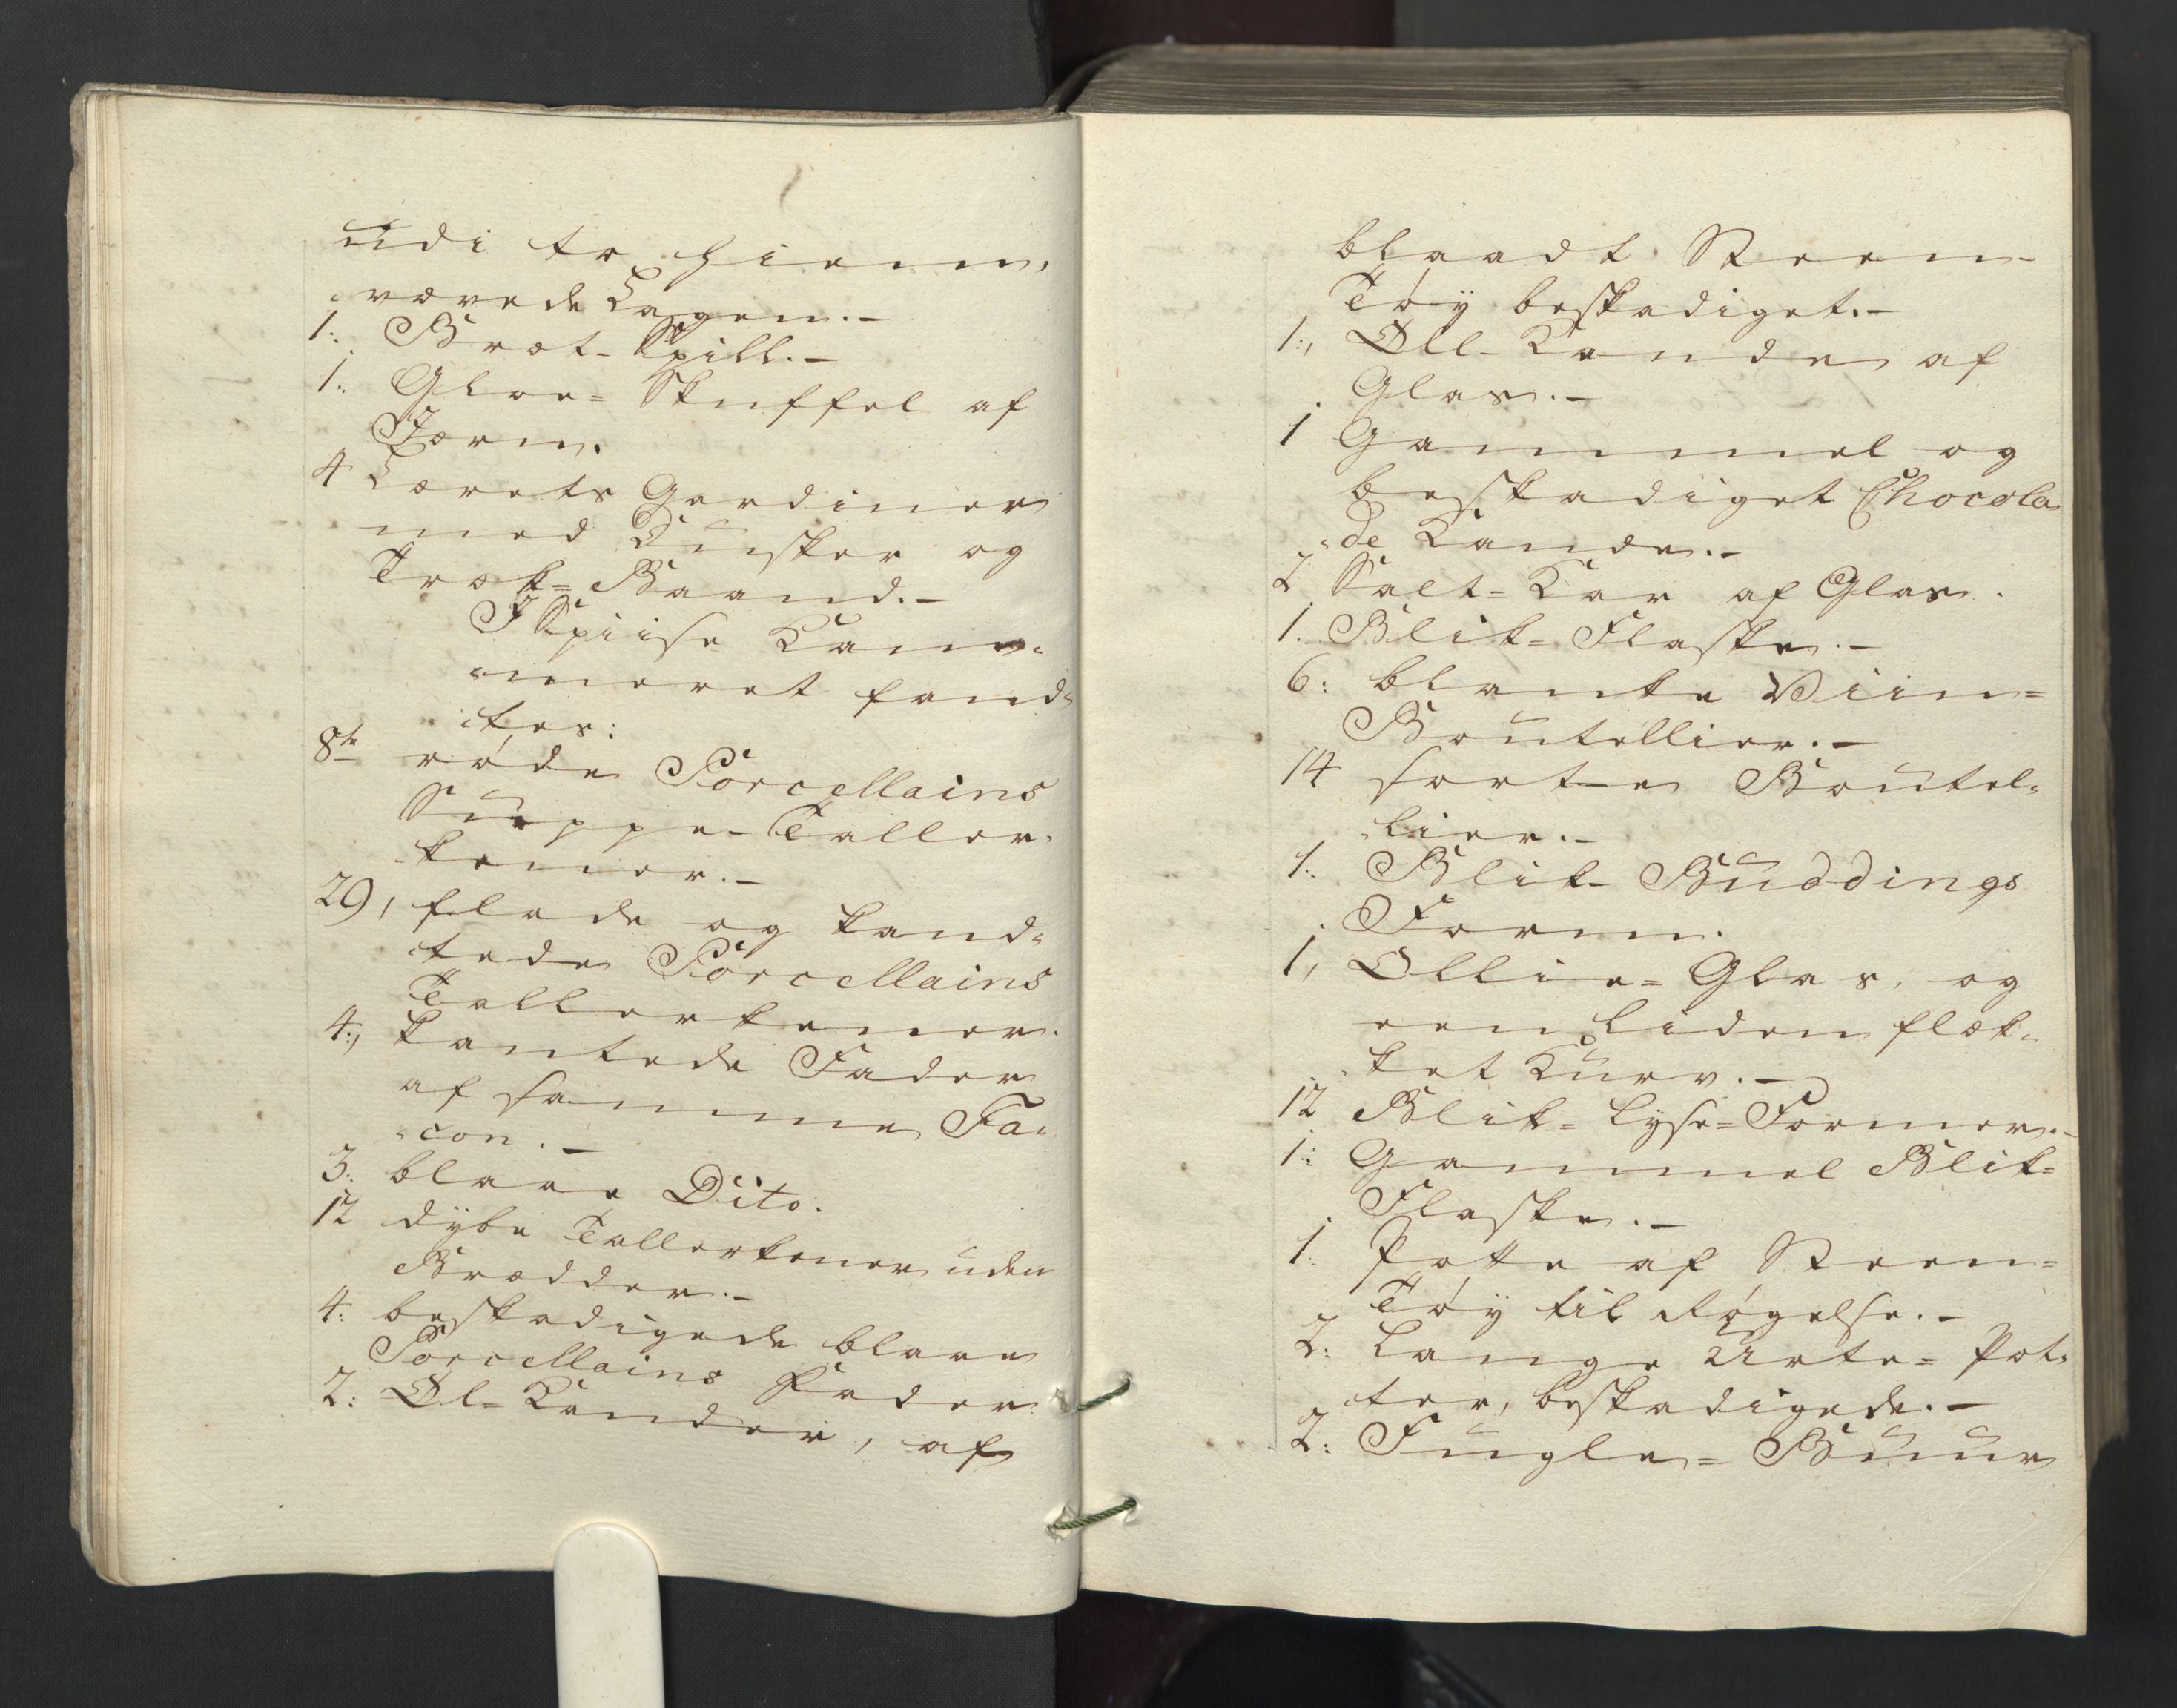 udi to hiem,
vævede Lagen.-
1: Bræt-Spill.-
1: Gloe=Skuffel af
Jærn.
4 Lærets Gardiner
med Dusker og
Træk=Baand.-
I Spiise Kam-
meret fand-
tes:
8te røde Porcellains
Suppe-Taller-
kener.-
29, flade og kand-
tede Porcellains
Tallerkener.
4:, kantede Fader
af samme Fa-
con.-
3: blaae Dito.
12 dybe Tallerkener uden
Brædder.-
4: beskadigede blaae
Porcellains Fader
2: Øl-Kander, af
blaadt Steen-
Tøy beskadiget.-
1:, Øll-Kande af
Glas.-
1 Gammel og
beskadiget Chocola
de Kande.-
2 Salt=Kar af Glas.
1. Blik=Flaske.-
6: blanke Viin=
Boutellier.-
14 sorte Boutel-
lier.-
1: Blik-Buddings
Form.
1, Ollie=Glas, og
een liden flæk-
ket Kurv.-
12 Blik=lyse=Former.-
1: Gammel Blik=
Flaske.-
1: Potte af Steen=
Tøy til Røgelse.-
2: Lange Urte=Pot-
ter, beskadigede.-
2: Fugle=Buur